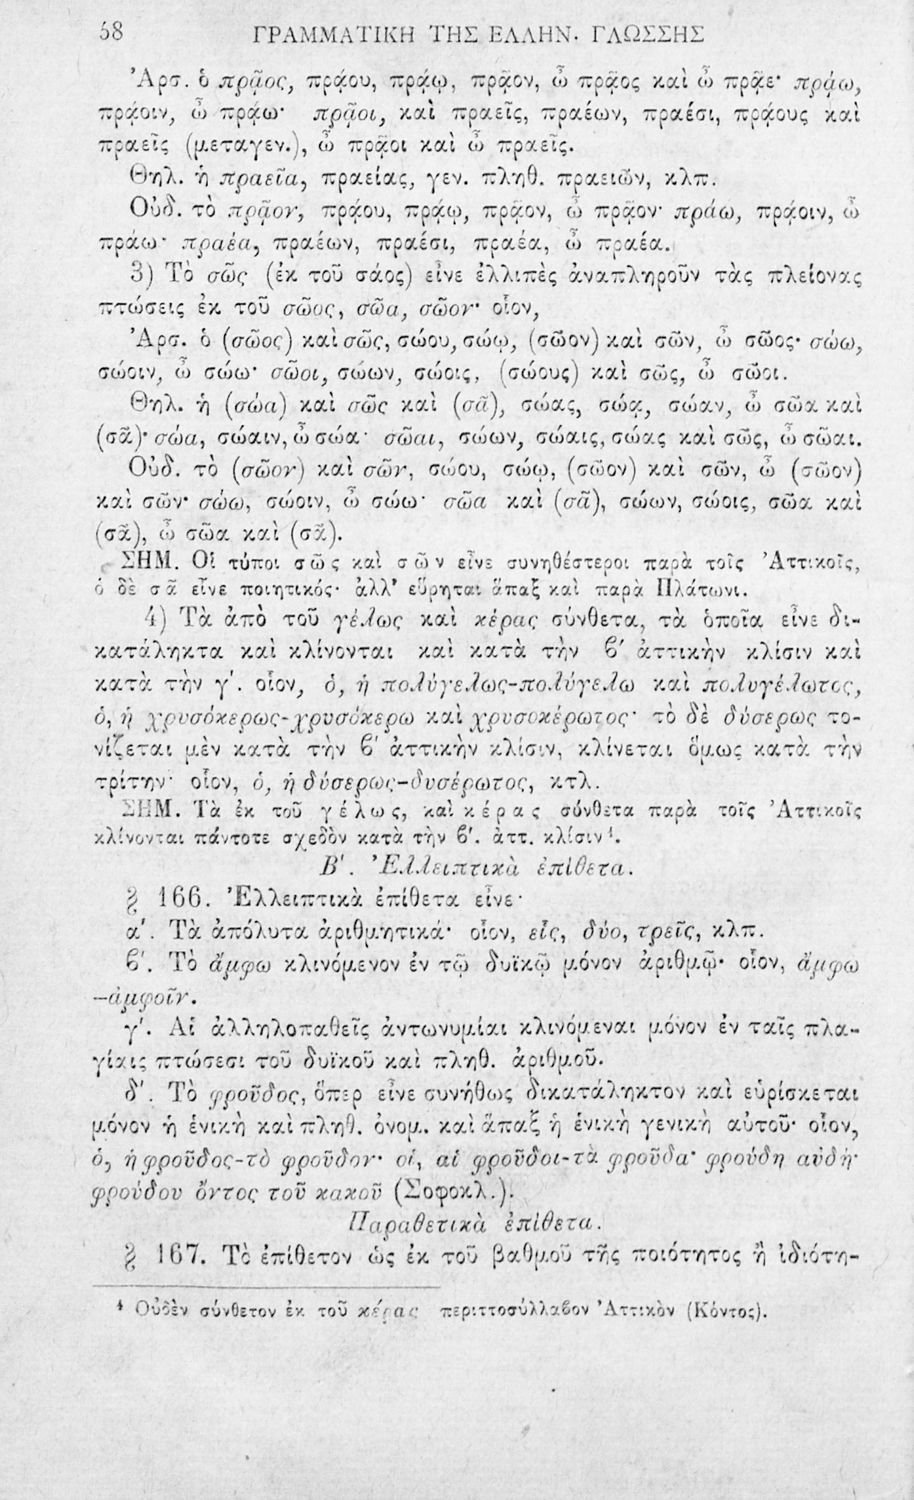 58 ΓΡΑΜΜΑΤΙΚΗ ΤΗΣ ΕΛΛΗΝ. ΓΛΩΣΣΗΣ
Ἀρσ. ὁ πρᾷος, πρᾴου, πρᾴῳ, πρᾷον, ὦ πρᾷος καὶ ὦ πρᾷε· πρᾴω,
πρᾴοιν, ὦ πρᾴω· πρᾷοι, καὶ πραεῖς, πραέων, πραέσι, πρᾴους καὶ
πραεῖς (μεταγεν.), ὦ πρᾷοι καὶ ὦ πραεῖς.
Θηλ. ἡ πραεῖα, πραείας, γεν. πληθ. πραειῶν, κλπ.
Οὐδ. τὸ πρᾷον, πρᾴου, πρᾴῳ, πρᾷον, ὦ πρᾷον· πρᾴω, πρᾴοιν, ὦ
πράω· πραέα, πραέων, πραέσι, πραέα, ὦ πραέα.
3) Τὸ σῶς (ἐκ τοῦ σάος) εἶνε ἐλλιπὲς ἀναπληροῦν τὰς πλείονας
πτώσεις ἐκ τοῦ σῶος, σῶα, σῶον· οἷον,
Ἀρσ. ὁ (σῶος) καὶ σῶς, σώου, σώῳ, (σῶον) καὶ σῶν, ὦ σῶος· σώω,
σώοιν, ὦ σώω· σῶοι, σώων, σώοις, (σώους) καὶ σῶς, ὦ σῶοι.
Θηλ. ἡ (σώα) καὶ σῶς καὶ (σᾶ), σώας, σώᾳ, σώαν, ὦ σῶα καὶ
(σᾶ)· σώα, σώαιν, ὦ σώα· σῶαι, σώων, σώαις, σώας καὶ σῶς, ὦ σῶαι.
Οὐδ. τὸ (σῶον) καὶ σῶν, σώου, σώῳ, (σῶον) καὶ σῶν, ὦ (σῶον)
καὶ σῶν· σώω, σώοιν, ὦ σώω· σῶα καὶ (σᾶ), σώων, σώοις, σῶα καὶ
(σᾶ), ὦ σῶα καὶ (σᾶ).
ΣΗΜ. Οἱ τύποι σῶς καὶ σῶν εἶνε συνηθέστεροι παρὰ τοῖς Ἀττικοῖς,
ὁ δὲ σᾶ εἶνε ποιητικός· ἀλλ' εὕρηται ἅπαξ καὶ παρὰ Πλάτωνι.
4) Τὰ ἀπὸ τοῦ γέλως καὶ κέρας σύνθετα, τὰ ὁποῖα εἶνε δι-
κατάληκτα καὶ κλίνονται καὶ κατὰ τὴν ϐ′ ἀττικὴν κλίσιν καὶ
κατὰ τὴν γ′. οἷον, ὁ, ἡ πολύγελως-πολύγελω καὶ πολυγέλωτος,
ὁ, ἡ χρυσόκερως-χρυσόκερω καὶ χρυσοκέρωτος· τὸ δὲ δύσερως το-
νίζεται μὲν κατὰ τὴν ϐ′ ἀττικὴν κλίσιν, κλίνεται ὅμως κατὰ τὴν
τρίτην· οἷον, ὁ, ἡ δύσερως-δυσέρωτος, κτλ.
ΣΗΜ. Τὰ ἐκ τοῦ γέλως, καὶ κέρας σύνθετα παρὰ τοῖς Ἀττικοῖς
κλίνονται πάντοτε σχεδὸν κατὰ τὴν ϐ′. ἀττ. κλίσιν¹.
Β′. Ἐλλειπτικὰ ἐπίθετα.
§ 166. Ἐλλειπτικὰ ἐπίθετα εἶνε·
α′. Τὰ ἀπόλυτα ἀριθμητικά· οἷον, εἷς, δύο, τρεῖς, κλπ.
ϐ′. Τὸ ἄμφω κλινόμενον ἐν τῷ δυϊκῷ μόνον ἀριθμῷ· οἷον, ἄμφω
—ἀμφοῖν.
γ′. Αἱ ἀλληλοπαθεῖς ἀντωνυμίαι κλινόμεναι μόνον ἐν ταῖς πλα-
γίαις πτώσεσι τοῦ δυϊκοῦ καὶ πληθ. ἀριθμοῦ.
δ′. Τὸ φροῦδος, ὅπερ εἶνε συνήθως δικατάληκτον καὶ εὑρίσκεται
μόνον ἡ ἑνικὴ καὶ πληθ. ὀνομ. καὶ ἅπαξ ἡ ἑνικὴ γενικὴ αὐτοῦ· οἷον,
ὁ, ἡ φροῦδος-τὸ φροῦδον· οἱ, αἱ φροῦδοι-τὰ φροῦδα· φρούδη αὐδή·
φρούδου ὄντος τοῦ κακοῦ (Σοφοκλ.).
Παραθετικὰ ἐπίθετα.
§ 167. Τὸ ἐπίθετον ὡς ἐκ τοῦ βαθμοῦ τῆς ποιότητος ἢ ἰδιότη-
¹ Οὐδὲν σύνθετον ἐκ τοῦ κέρας περιττοσύλλαϐον Ἀττικὸν (Κόντος).